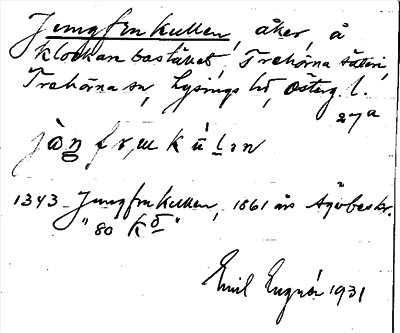 Jungfrukullen, åker, å
klockarebostället, Trehörna säteri,
Trehörna sn, Lysings hd, Österg. l.
27a
1343 Jungfrukullen, 1861 års Ägobeskr.
" 80
Emil 1931